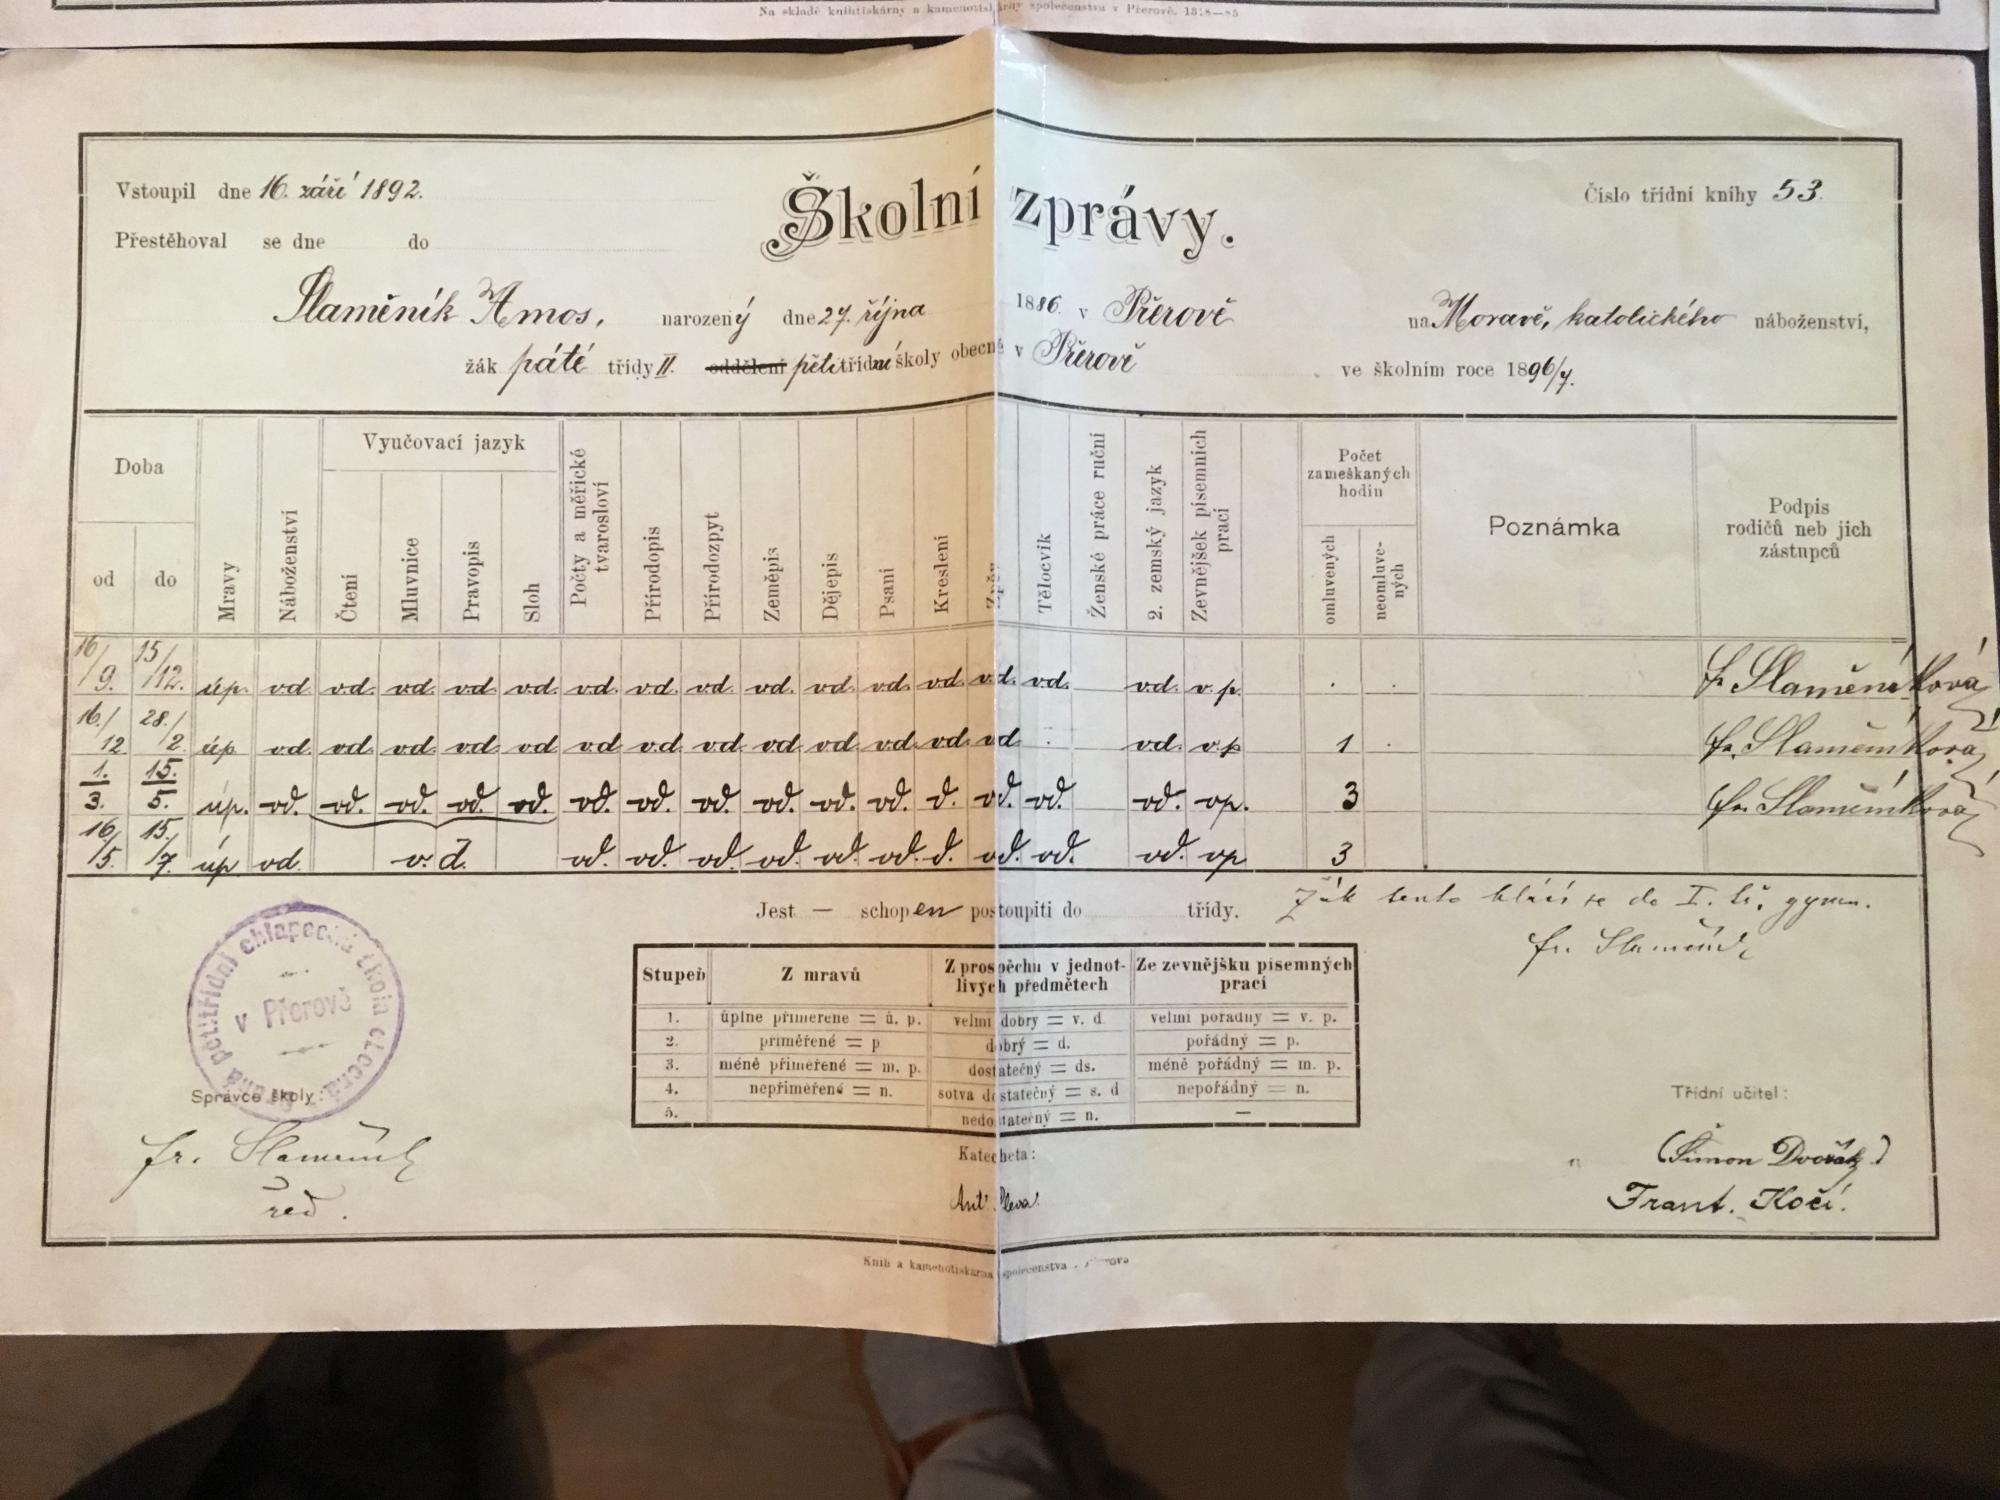 Na skladě knihtiskárny a kamenotiskárny společenstva v Přerově.
Vstoupil dne 16. září 1892.
Školní zprávy.
Číslo třídní knihy 53.
Přestěhoval se dne do
Slaměník Amos, narozený dne 27. října 1886. v Přerově na Moravě, katolického náboženství,
žák páté třídy II. oddělení pětitřídní školy obecné v Přerově ve školním roce 1896/7.
Doba od do Mravy Náboženství Vyučovací jazyk Čtení Mluvnice Pravopis Sloh Počty a měřické tvarosloví Přírodopis Přírodozpyt Zeměpis Dějepis Psaní Kreslení Zpěv Tělocvik Ženské práce ruční 2. zemský jazyk Zevnějšek písemních prací Počet zameškaných hodin omluvených neomluvených Poznámka Podpis rodičů neb jich zástupců
16/9. 15/12. úp. vd. vd. vd. vd. vd. vd. vd. vd. vd. vd. vd. vd. vd. vd. vd. v.p. . . fr. Slaměníková
16./12 28./2. úp vd. vd. vd. vd. vd. vd. vd. vd. vd. vd. vd. vd. vd. . vd. v.p 1 . fr. Slaměníková
1./3. 15./5. úp. vd. vd. vd. vd. vd. vd. vd. vd. vd. vd. vd. d. vd. vd. vd. vp. 3 fr. Slaměníková
16/5. 15./7. úp vd. v.d. vd. vd. vd. vd. vd. vd. d. vd. vd. vd. vp 3
Jest — schopen postoupiti do třídy.
Žák tento hlásí se do I. tř. gymn.
fr. Slaměník
chlapecká škola obecná pětitřídní
v Přerově
Stupeň Z mravů Z prospěchu v jednotlivých předmětech Ze zevnějšku písemných prací
1. úplně přiměřené = ú. p. velmi dobrý = v. d. velmi pořádný = v. p.
2. přiměřené = p dobrý = d. pořádný = p.
3. méně přiměřené = m. p. dostatečný = ds. méně pořádný = m. p.
4. nepřiměřené = n. sotva dostatečný = s. d nepořádný = n.
5. nedostatečný = n. —
Správce školy:
fr. Slaměník
řed.
Katecheta:
Ant. Pleva.
Třídní učitel:
(Šimon Dvořák)
Frant. Kočí.
Knih a kamenotiskárna společenstva Přerova